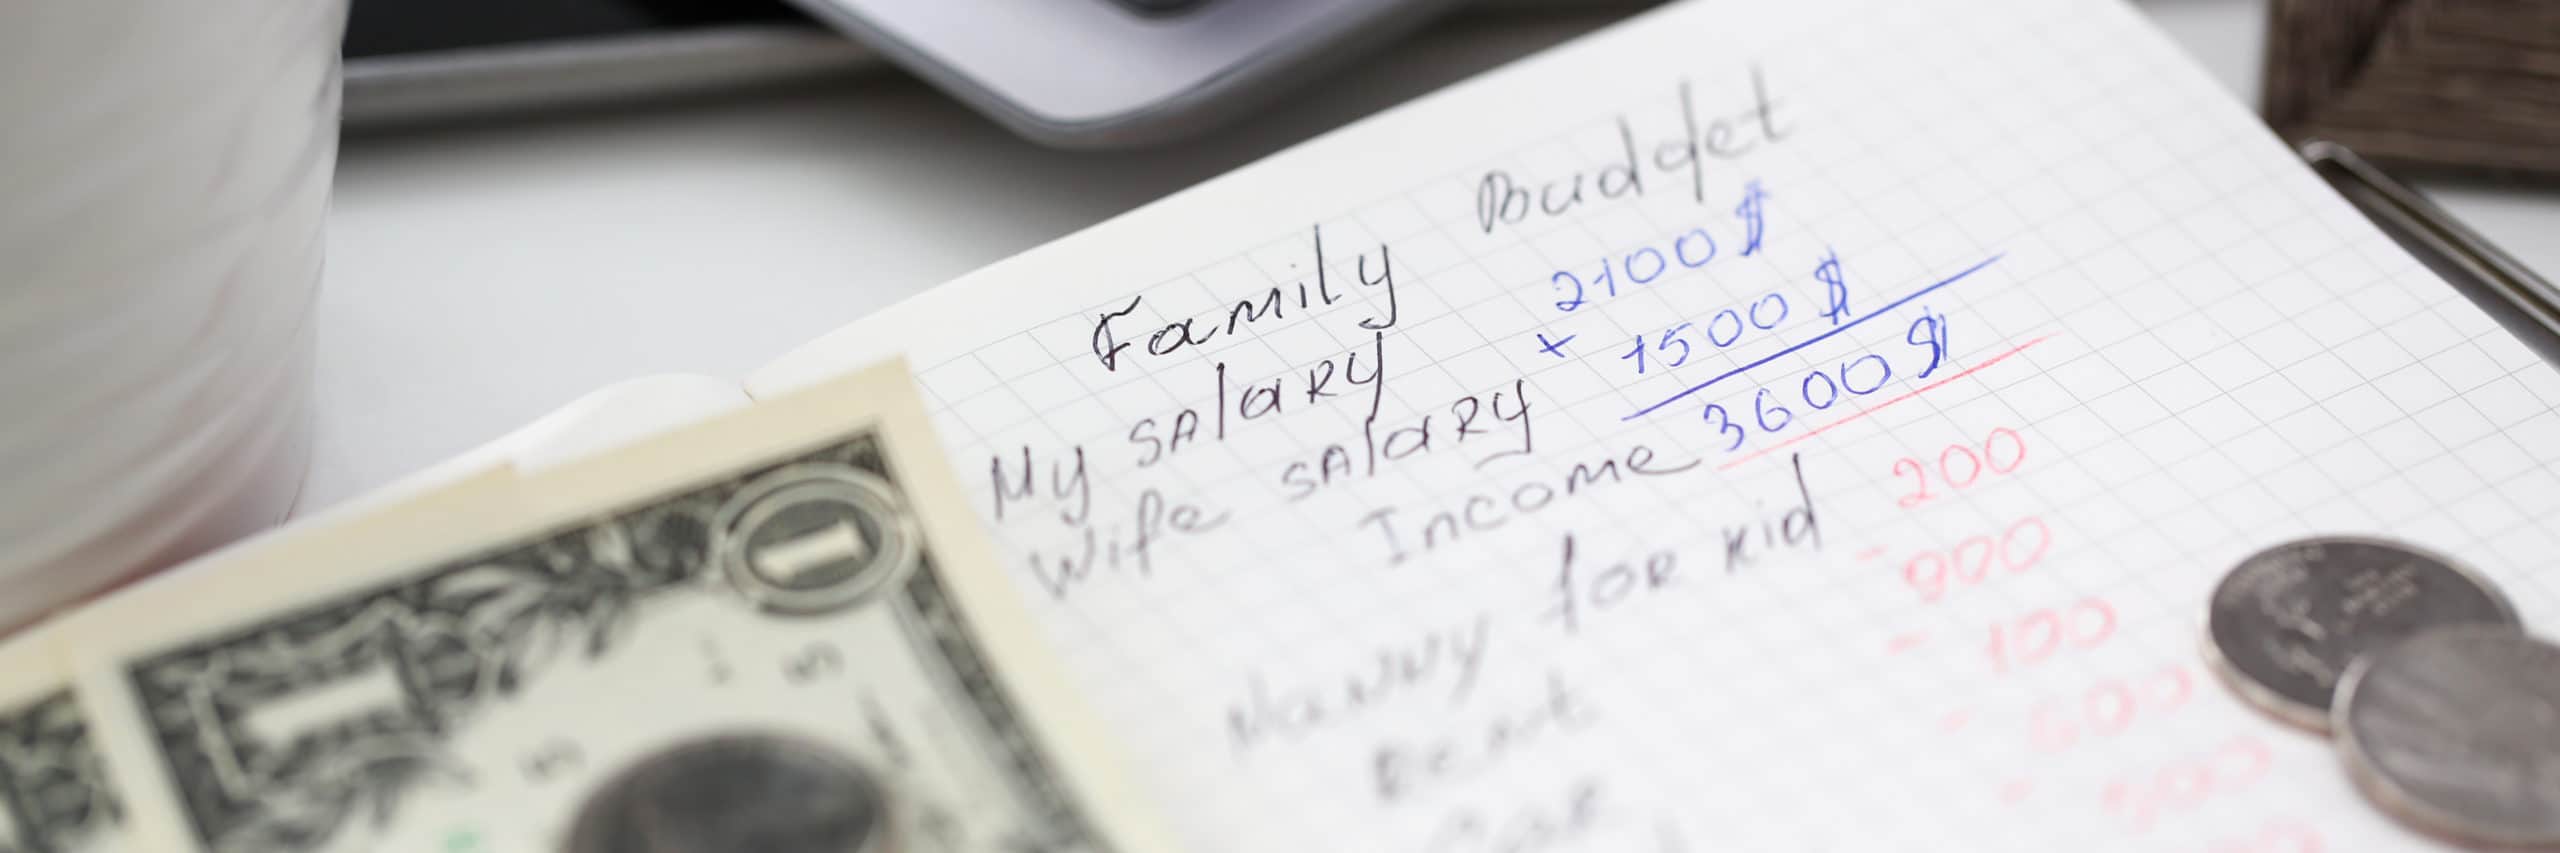 Family Budget
My salary 2100 $
+
Wife salary 1500 $
Income 3600 $
Nanny for kid 200
Rent - 900
Car - 100
- 600
1